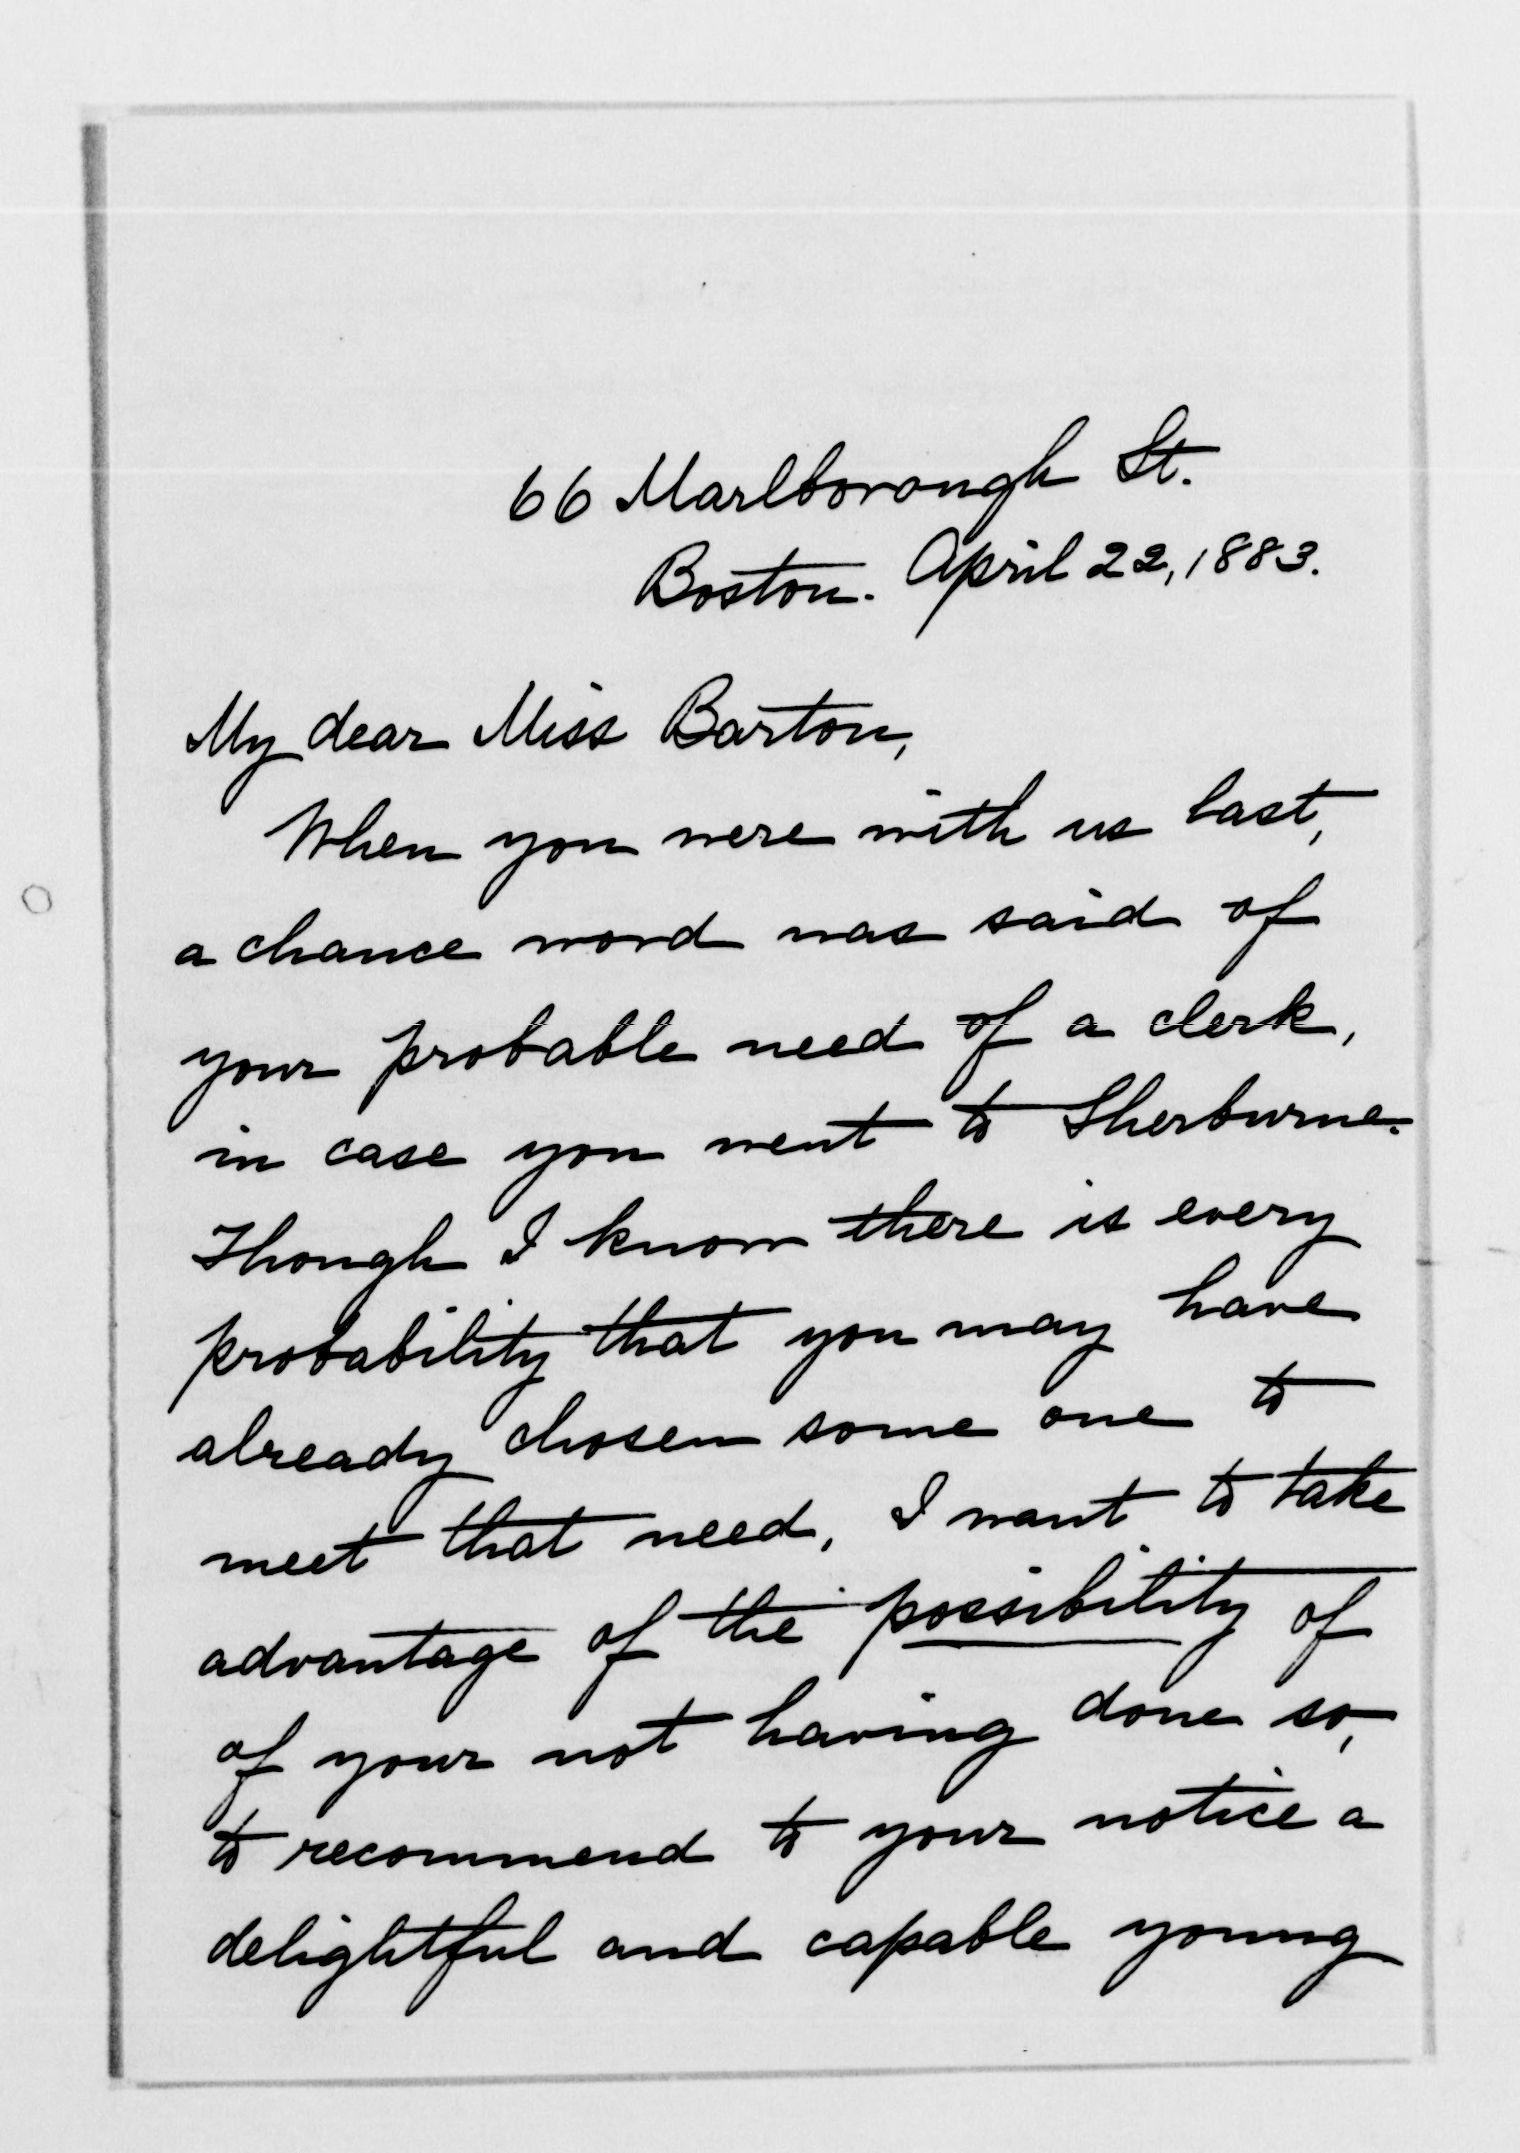 66 Marlborough St.
Boston. April 22, 1883.
My dear Miss Barton,
When you were with us last,
a chance word was said of
your probable need of a clerk,
in case you went to Sherburne.
Though I know there is every
probability that you may have
already chosen some one to
meet that need, I want to take
advantage of the possibility of
of your not having done so,
to recommend to your notice a
delightful and capable young